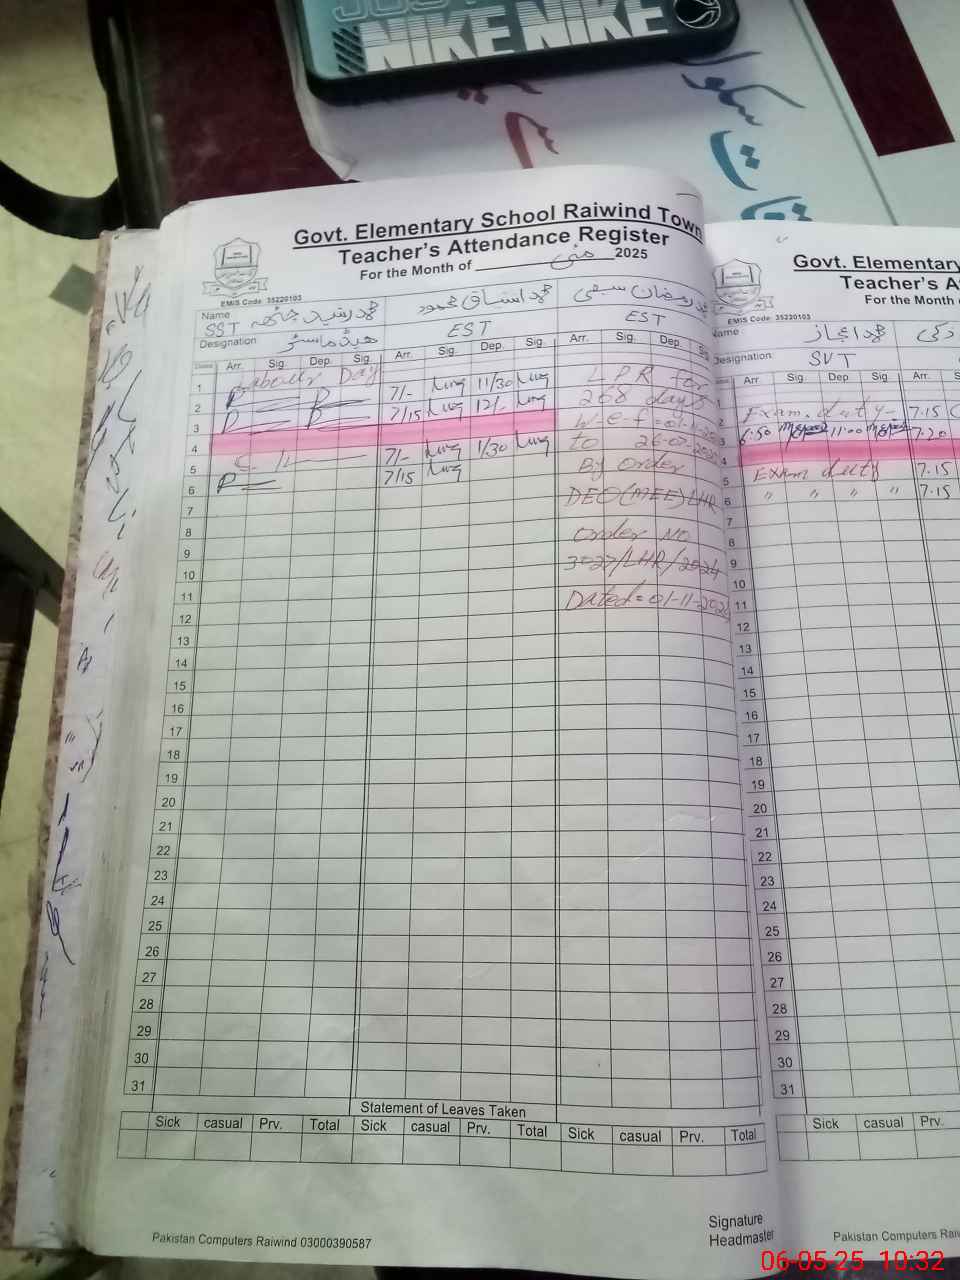 NIKE NIKE
Govt. Elementary School Raiwind Town
Teacher's Attendance Register
For the Month of مئی 2025
EMIS Code 35220103
Name
SST محمد رشید
محمد اسحاق محمود
محمد رمضان سیفی
Designation
ہیڈ ماسٹر
EST
EST
Dates Arr. Sig. Dep. Sig. Arr. Sig. Dep. Sig. Arr. Sig. Dep. Sig.
1 Labour Day
2 P P 7/- 11/30
3 P P 7/15 12/-
4
5 C/L 7/- 1/30
6 P 7/15
7
8
9
10
11
12
13
14
15
16
17
18
19
20
21
22
23
24
25
26
27
28
29
30
31
LPR for
268 days
W-e-f = 01-11-
to 26-07-
By Order
DEO(MEE) LHR
Order No
3027/LHR/2024
Dated = 01-11-202
Statement of Leaves Taken
Sick casual Prv. Total Sick casual Prv. Total Sick casual Prv. Total
Signature
Headmaster
Pakistan Computers Raiwind 03000390587
Govt. Elementary
Teacher's A
For the Month o
EMIS Code 35220103
Name محمد اعجاز
Designation SVT
Arr. Sig. Dep. Sig. Arr. S
1
2 Exam. duty 7.15
3 6:50 11:00 7.20
4
5 Exam duty 7.15
6 " " " " 7.15
7
8
9
10
11
12
13
14
15
16
17
18
19
20
21
22
23
24
25
26
27
28
29
30
31
Sick casual Prv.
Pakistan Computers Raiw
06-05-25 10:32